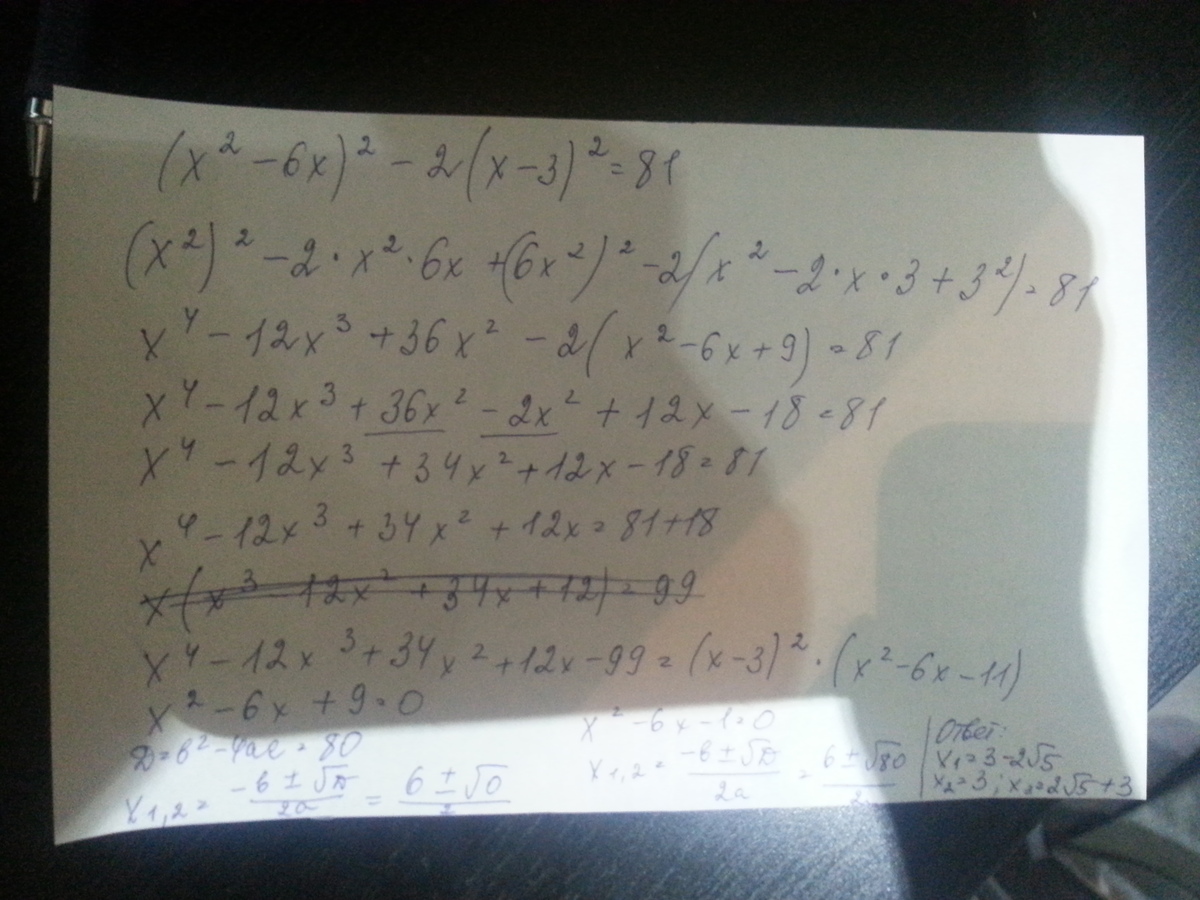 (x² - 6x)² - 2(x-3)² = 81
(x²)² - 2·x²·6x + (6x²)² - 2(x² - 2·x·3 + 3²) = 81
x⁴ - 12x³ + 36x² - 2(x² - 6x + 9) = 81
x⁴ - 12x³ + 36x² - 2x² + 12x - 18 = 81
x⁴ - 12x³ + 34x² + 12x - 18 = 81
x⁴ - 12x³ + 34x² + 12x = 81+18
x(x³ - 12x² + 34x + 12) = 99
x⁴ - 12x³ + 34x² + 12x - 99 = (x-3)² · (x² - 6x - 11)
x² - 6x + 9 = 0
D = b² - 4ac = 80
x1,2 = (-b ± √D)/2a = (6 ± √0)/2
x² - 6x - 1 = 0
x1,2 = (-b ± √D)/2a = (6 ± √80)/2
Ответ:
x₁ = 3 - 2√5
x₂ = 3; x₃ = 2√5 + 3